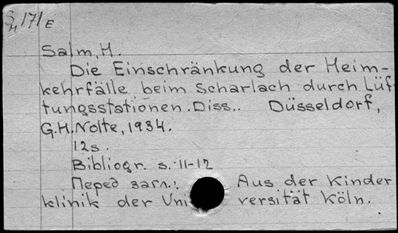 3/4 171E
Salm, H.
Die Einschränkung der Heim-
kehrfälle beim Scharlach durch Lüf-
tungsstationen. Diss.. Düsseldorf,
G.H. Nolte, 1934.
12s.
Bibliogr. s. 11-12
Перед загл.: Aus der Kinder
klinik der Uni versität Köln.